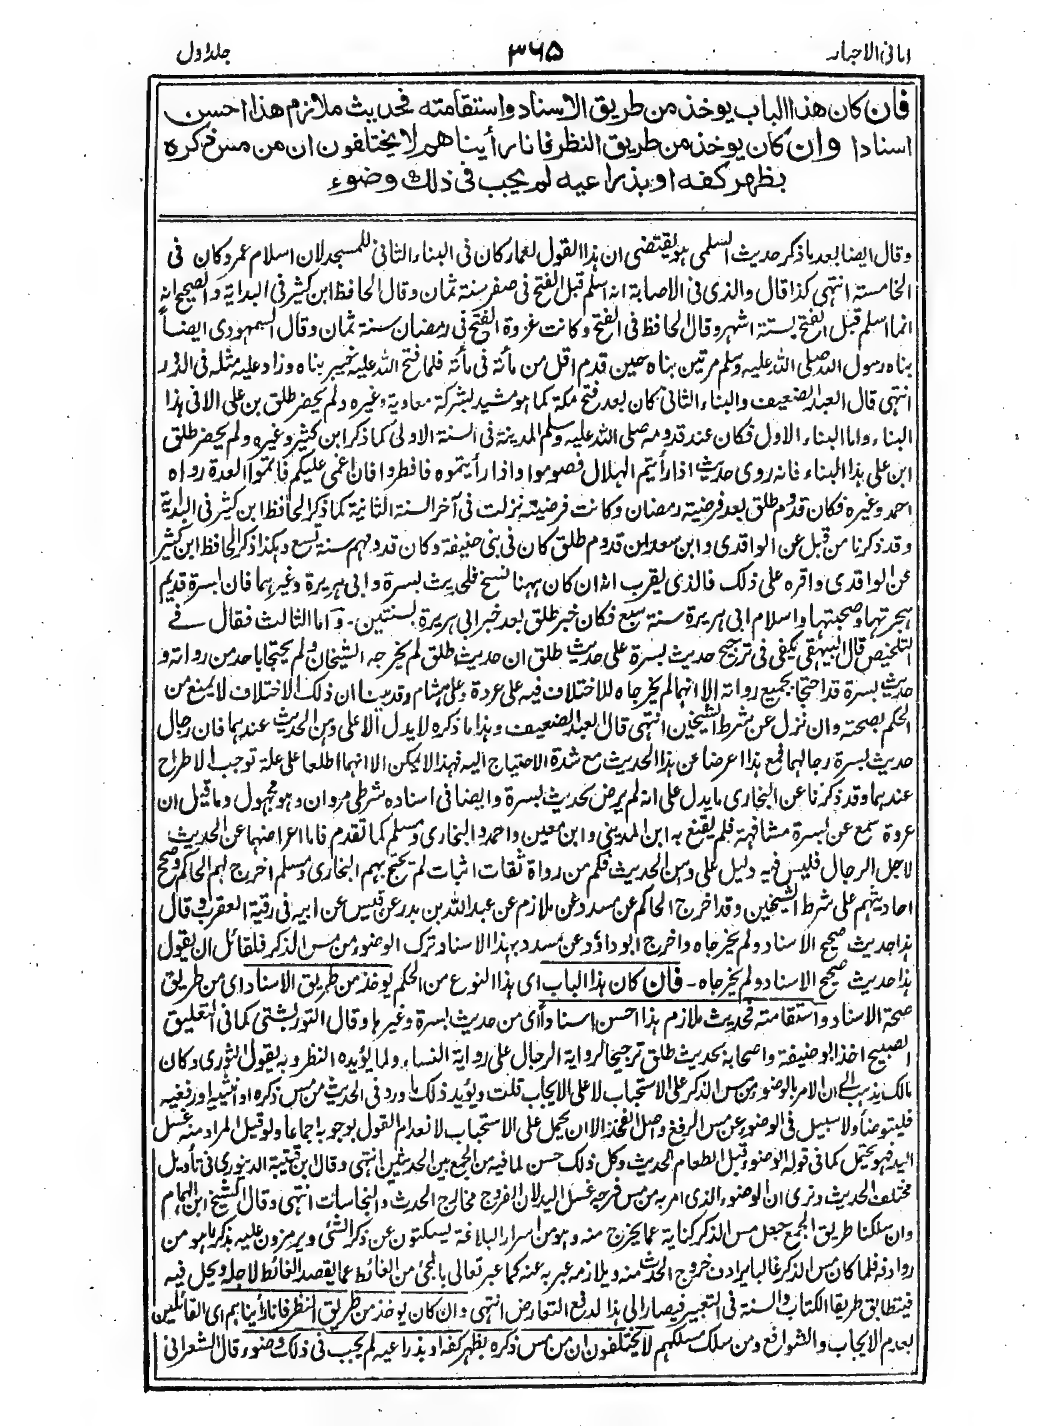 امانی الاحبار ۳۶۵ جلد اول
فان كان هذا الباب يوخذ من طريق الاسناد واستقامته فحديث ملازم هذا احسن
اسنادا وان كان يوخذ من طريق النظر فانا رأيناهم لا يختلفون ان من مس ذكره
بظهر كفه او بذراعيه لم يجب فى ذلك وضوء
وقال ايضا بعد ما ذكر حديث السلمى هو يقتضى ان هذا القول لعمار كان فى البناء الثانى للمسجد لان اسلام عمرو كان فى
الخامسة انتهى كذا قال والذى فى الاصابة انه اسلم قبل الفتح فى صفر سنة ثمان وقال الحافظ ابن كثير فى البداية والصحيح انه
انما اسلم قبل الفتح بستة اشهر وقال الحافظ فى الفتح وكانت غزوة الفتح فى رمضان سنة ثمان وقال السمهودى ايضاً
بناه رسول الله صلى الله عليه وسلم مرتين بناه حين قدم اقل من مأئة فى مأئة فلما فتح الله عليه خيبر بناه وزاد عليه مثله فى الدور
انتهى قال العبد الضعيف والبناء الثانى كان بعد فتح مكة كما هو مشيد بشركة معاوية وغيره ولم يحضر طلق بن على الا فى هذا
البناء واما البناء الاول فكان عند قدومه صلى الله عليه وسلم المدينة فى السنة الاولى كما ذكر ابن كثير وغيره ولم يحضر طلق
ابن على هذا البناء فانه روى حديث اذا رأيتم الهلال فصوموا واذا رأيتموه فافطروا فان اغمى عليكم فاتموا العدة رواه
احمد وغيره فكان قدوم طلق بعد فرضية رمضان وكانت فرضيته نزلت فى آخر السنة الثانية كما ذكر الحافظ ابن كثير فى البداية
وقد ذكرنا من قبل عن الواقدى وابن سعد ان قدوم طلق كان فى بنى حنيفة وكان قدومهم سنة تسع وهكذا ذكر الحافظ ابن كثير
عن الواقدى واقره على ذلك فالذى يقرب انه ان كان ههنا نسخ فلحديث بسرة وابى هريرة وغيرهما فان بسرة قديم
هجرتها وصحبتها واسلام ابى هريرة سنة سبع فكان خبر طلق بعد خبر ابى هريرة بسنتين۔ وآما الثالث فقال فے
التلخيص قال البيهقى يكفى فى ترجيح حديث بسرة على حديث طلق ان حديث طلق لم يخرجه الشيخان ولم يحتجا باحد من رواته و
حديث بسرة قد احتجا بجميع رواته الا انهما لم يخرجاه للاختلاف فيه على عروة وعلى هشام وقد بينا ان ذلك الاختلاف لا يمنع من
الحكم بصحته وان نزل عن شرط الشيخين انتهى قال العبد الضعيف وهذا ما ذكره لا يدل الا على وهن الحديث عندهما فان رجال
حديث بسرة رجالهما فمع هذا اعرضا عن هذا الحديث مع شدة الاحتياج اليه فهذا لا يمكن الا انهما اطلعا على علة توجب الاطراح
عندهما وقد ذكرنا عن البخارى ما يدل على انه لم يرض بحديث بسرة وايضا فى اسناده شرطى مروان وهو مجهول وما قيل ان
عروة سمع عن بسرة مشافهة فلم يقنع به ابن المدينى وابن معين واحمد والبخارى ومسلم كما تقدم فاما اعراضهما عن الحديث
لاجل الرجال فليس فيه دليل على وهن الحديث فكم من رواة ثقات اثبات لم يحتج بهم البخارى ومسلم اخرج لهم الحاكم وصح
احاديثهم على شرط الشيخين وقد اخرج الحاكم عن مسدد عن ملازم عن عبد الله بن بدر عن قيس عن ابيه فى رقية العقرب وقال
هذا حديث صحيح الاسناد ولم يخرجاه واخرج ابو داؤد عن مسدد بهذا الاسناد ترك الوضوء من مس الذكر فلقائل ان يقول
هذا حديث صحيح الاسناد ولم يخرجاه۔ فان كان هذا الباب اى هذا النوع من الحكم يوخذ من طريق الاسناد اى من طريق
صحة الاسناد واستقامته فحديث ملازم هذا احسن اسنادا اى من حديث بسرة وغيرها وقال التوربشتى كما فى التعليق
الصبيح اخذ ابو حنيفة واصحابه بحديث طلق ترجيحا لرواية الرجال على رواية النساء ولما يؤيده النظر وبه يقول الثورى وكان
مالك يذهب الى ان الامر بالوضوء من مس الذكر على الاستحباب لا على الايجاب قلت ويؤيد ذلك ما ورد فى الحديث من مس ذكره او انثييه او رفغيه
فليتوضأ ولا سبيل فى الوضوء عن مس الرفغ واصل الفخذ الا ان يحمل على الاستحباب لانعدام القول بوجوبه اجماعا ولو قيل المراد منه غسل
اليد فهو محتمل كما فى قوله الوضوء قبل الطعام الحديث وكل ذلك حسن لما فيه من الجمع بين الحديثين انتهى وقال ابن قتيبة الدينورى فى تأويل
مختلف الحديث ونرى ان الوضوء الذى امر به من مس فرجه غسل اليد لان الفروج مخارج الحدث والنجاسات انتهى وقال الشيخ ابن الهمام
وان سلكنا طريق الجمع جعل مس الذكر كناية عما يخرج منه وهو من اسرار البلاغة يسكتون عن ذكر الشئ ويرمزون عليه بذكر ما هو من
روادفه فلما كان مس الذكر غالبا يرادف خروج الحدث منه ويلازمه عبر به عنه كما عبر تعالى بالمجئ من الغائط عما يقصد الغائط لاجله ويحل فيه
فيتطابق طريقا الكتاب والسنة فى التعبير فيصار الى هذا لدفع التعارض انتهى وان كان يوخذ من طريق النظر فانا رأيناهم اى القائلين
بعدم الايجاب والشوافع ومن سلك مسلكهم لا يختلفون ان من مس ذكره بظهر كفه او بذراعيه لم يجب فى ذلك وضوء قال الشعرانى